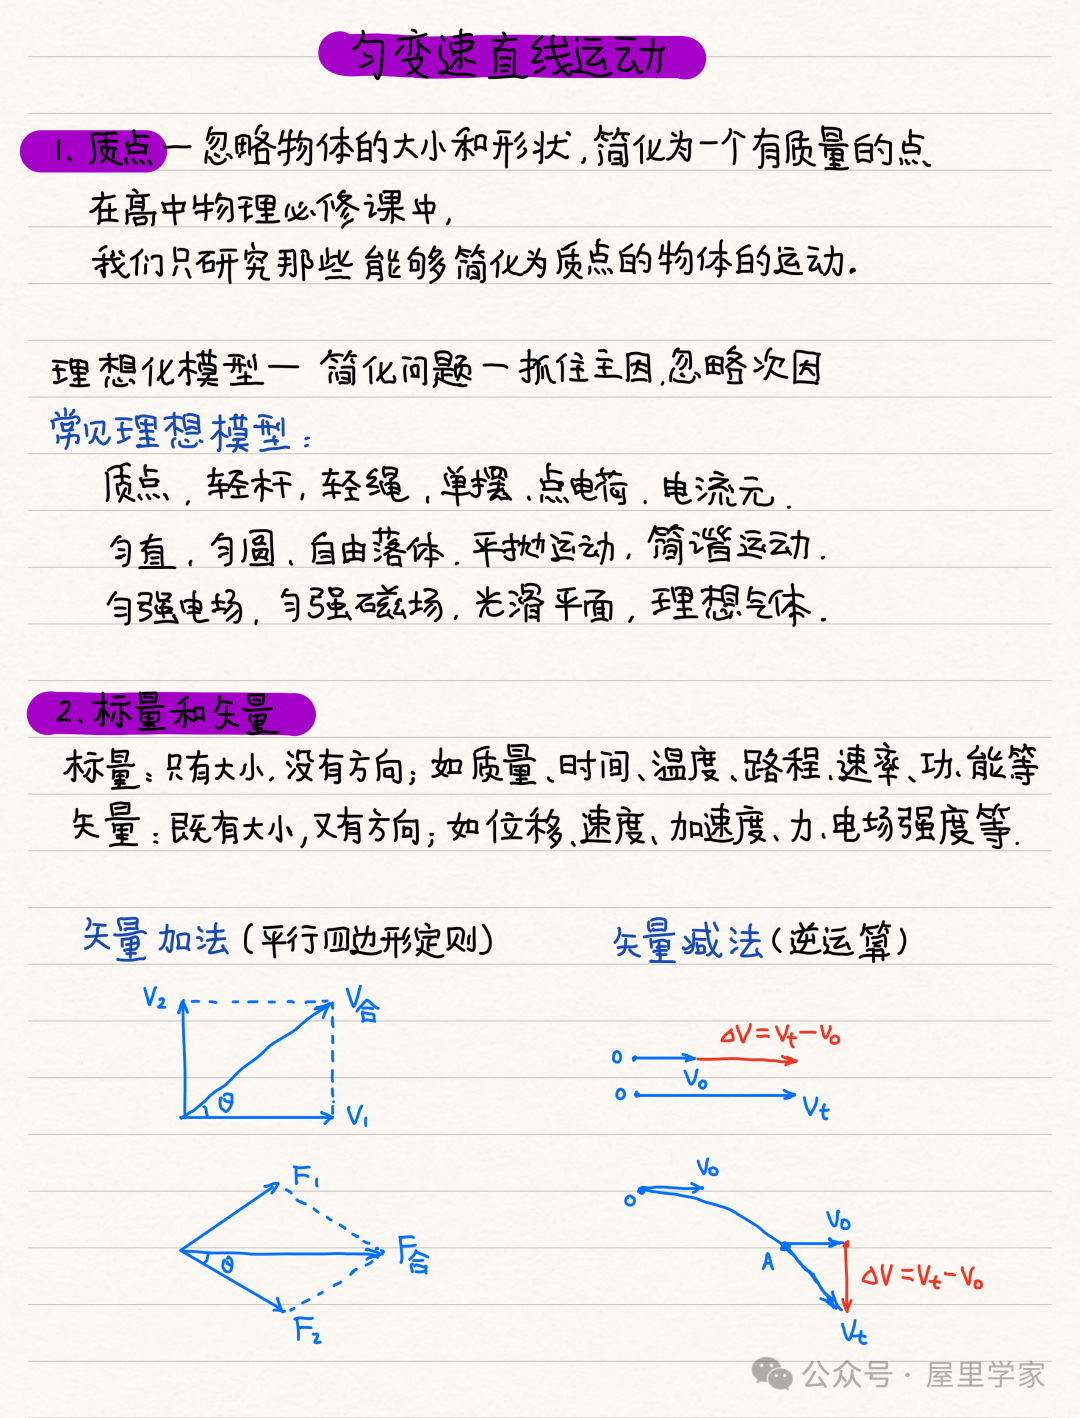 匀变速直线运动
1. 质点 — 忽略物体的大小和形状,简化为一个有质量的点
在高中物理必修课中,
我们只研究那些能够简化为质点的物体的运动.
理想化模型 — 简化问题 — 抓住主因,忽略次因
常见理想模型:
质点、轻杆,轻绳、单摆、点电荷、电流元.
匀直、匀圆、自由落体、平抛运动,简谐运动.
匀强电场,匀强磁场,光滑平面,理想气体.
2. 标量和矢量
标量:只有大小,没有方向;如质量、时间、温度、路程、速率、功、能等
矢量:既有大小,又有方向;如位移、速度、加速度、力、电场强度等.
矢量加法(平行四边形定则) 矢量减法(逆运算)
V₂ V合
θ V₁
ΔV=Vt-V₀
0 V₀
0 Vt
F₁
θ F合
F₂
V₀
0
V₀
A
ΔV=Vt-V₀
Vt
公众号·屋里学家